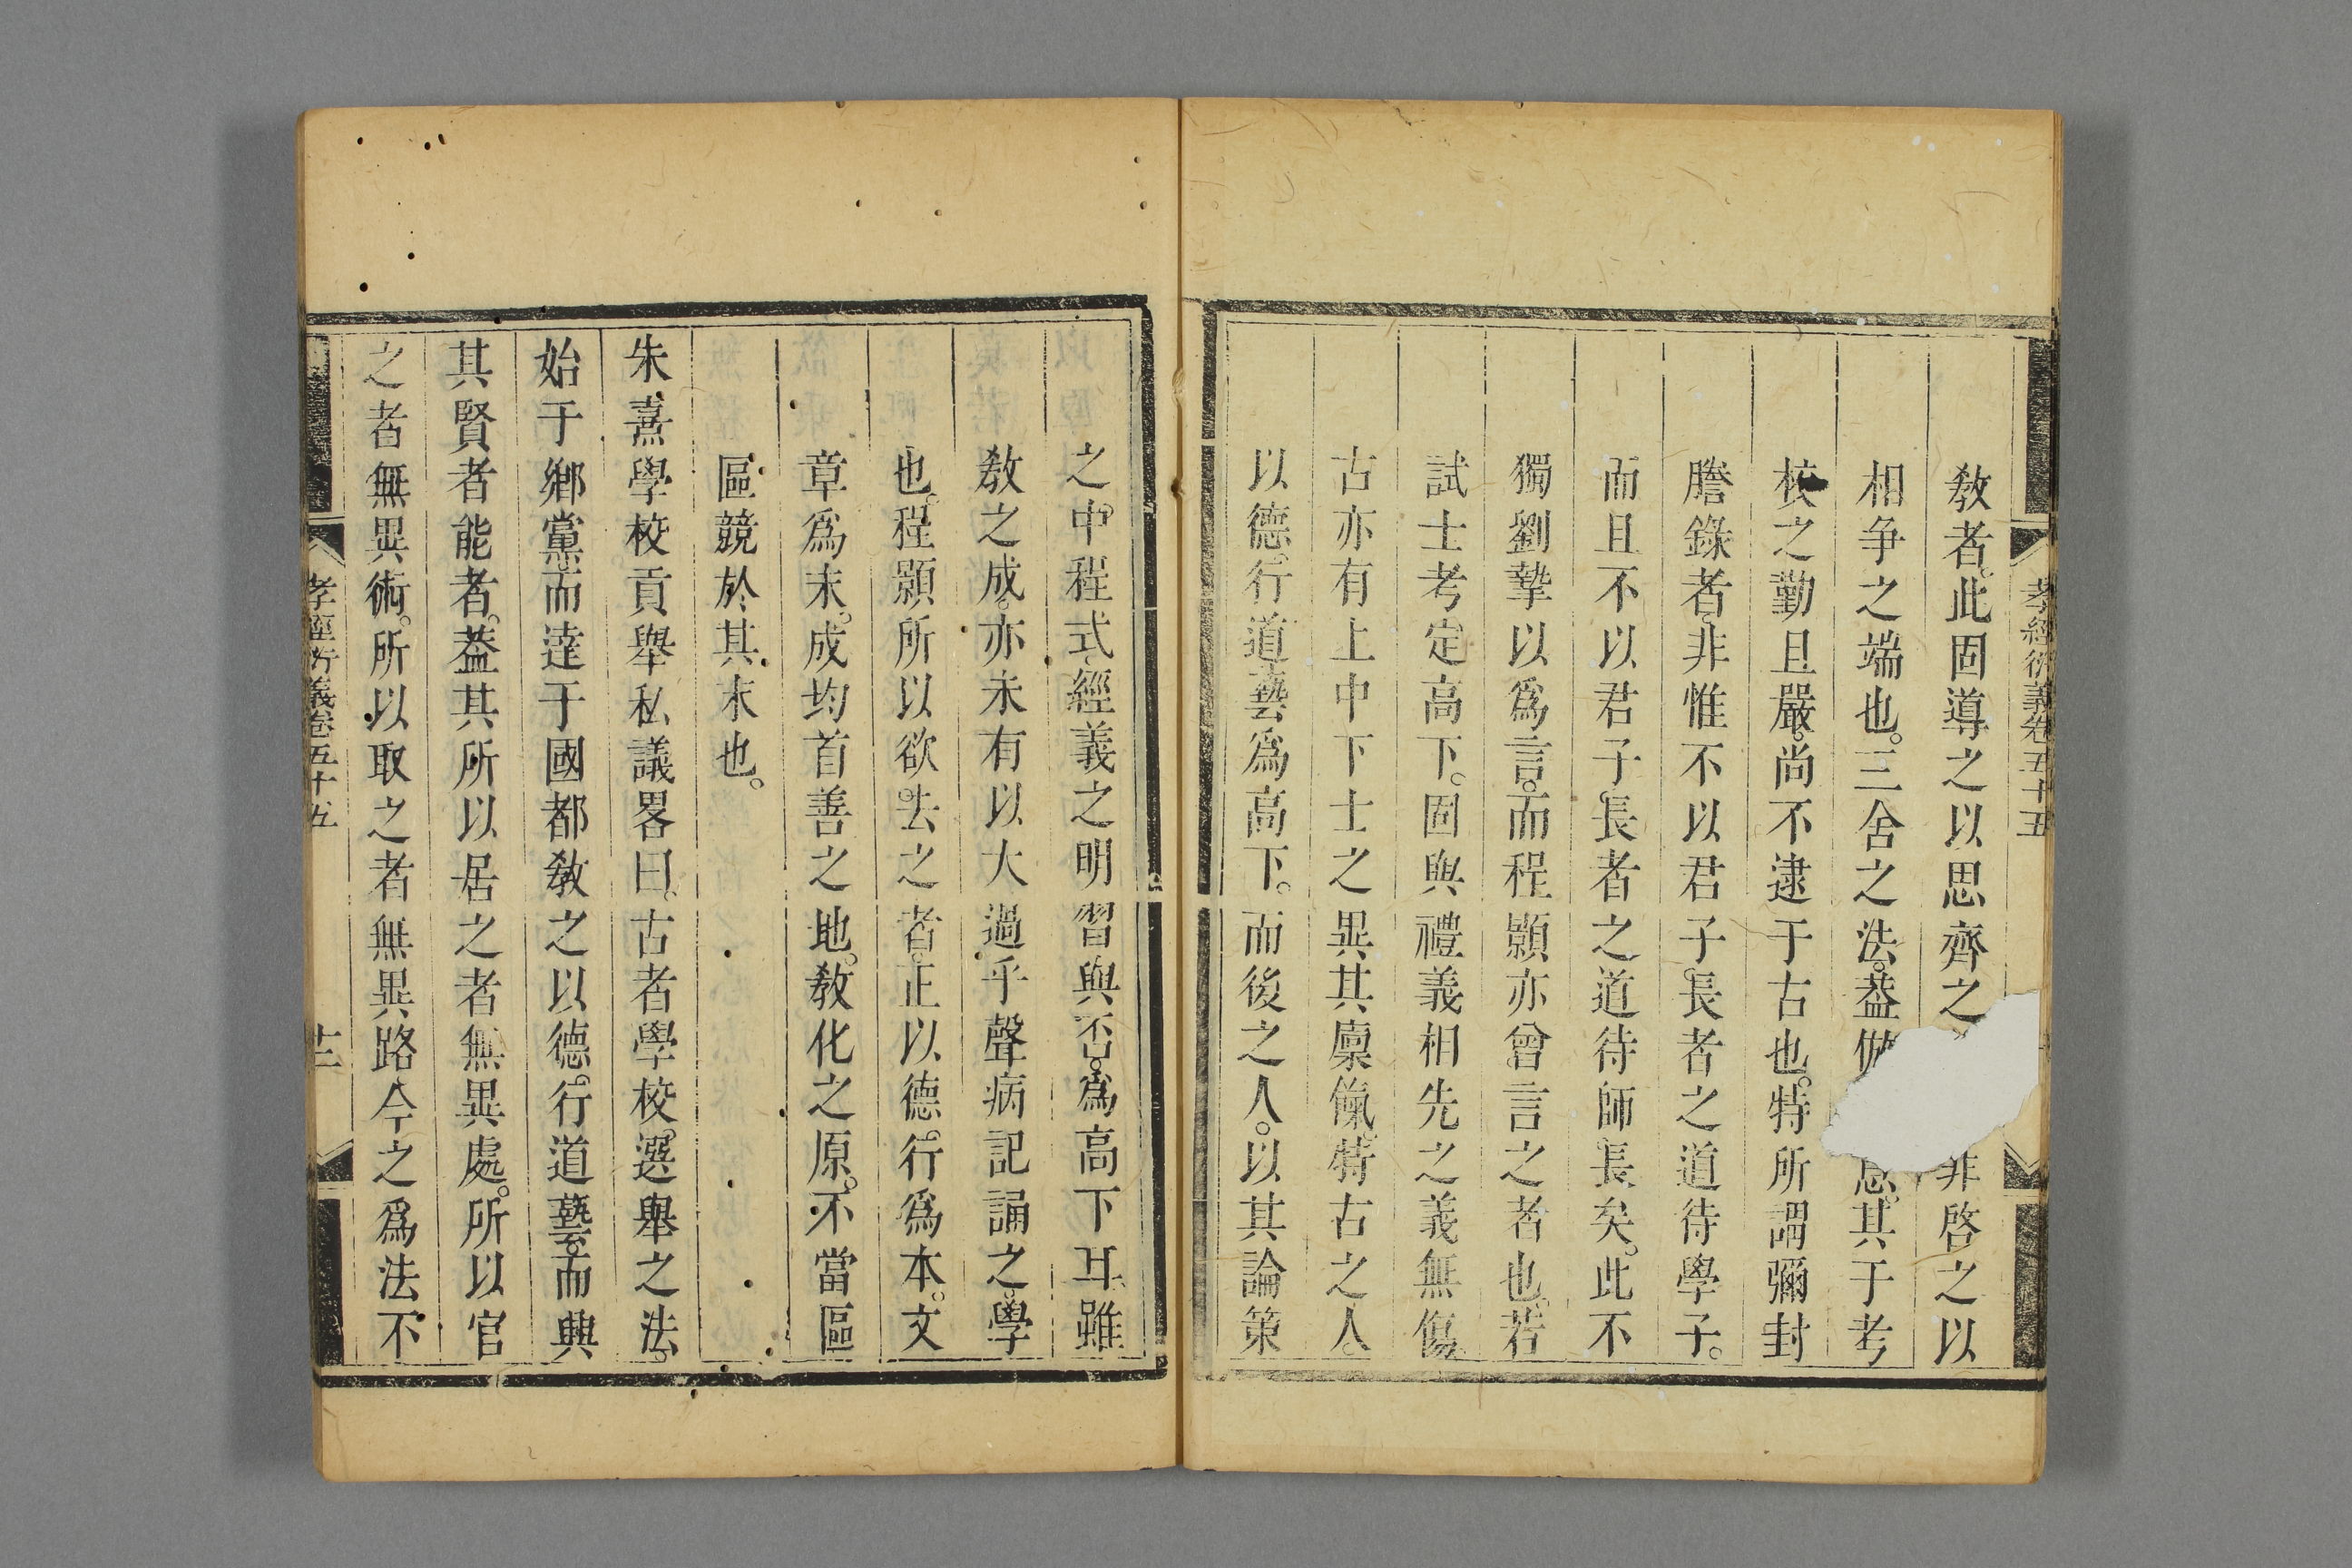 孝經衍義卷五十五
教者。此固導之以思齊之非啓之以
相爭之端也。三舍之法。葢倣意。其于考
校之勤且嚴。尚不逮于古也。特所謂彌封
謄錄者。非惟不以君子。長者之道待學子。
而且不以君子。長者之道待師長矣。此不
獨劉摯以爲言。而程顥亦曾言之者也。若
試士考定高下。固與禮義相先之義無傷。
古亦有上中下士之異其廩餼。特古之人。
以德。行道藝爲高下。而後之人。以其論策
之中。程式。經義之明習與否。爲高下耳。雖
教之成。亦未有以大過乎聲病記誦之。學
也。程顥所以欲。去之者。正以德。行爲本。文
章爲末。成均首善之地。教化之原。不當區
區競於其末也。
朱熹學校貢舉私議畧曰。古者學校。選舉之法。
始于鄉黨。而達于國都教之以德。行道藝。而興
其賢者能者。葢其所以居之者無異處。所以官
之者無異術。所以取之者無異路今之爲法不
孝經衍義卷五十五
十二